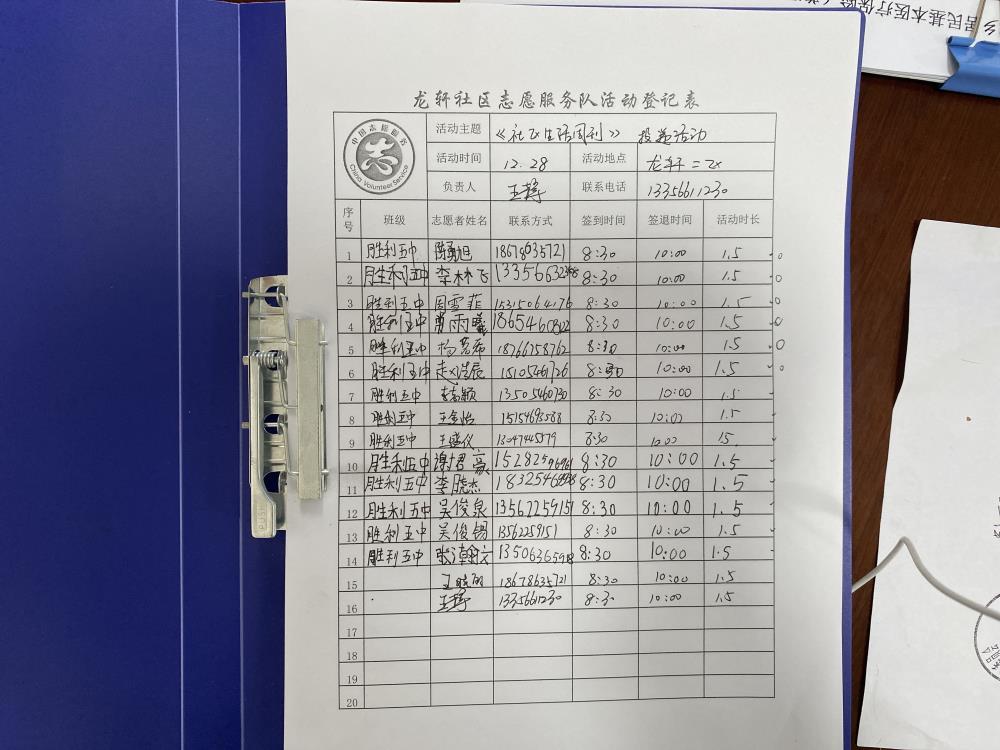 居民基本医疗保险
龙轩社区志愿服务队活动登记表
中国志愿服务
China Volunteer Service
活动主题 《社区生活周刊》 投递活动
活动时间 12.28 活动地点 龙轩二区
负责人 王 联系电话 13356611230
序号 班级 志愿者姓名 联系方式 签到时间 签退时间 活动时长
1 胜利五中 陈勇旭 18678635721 8:30 10:00 1.5
2 胜利五中 李林飞 8:30 10:00 1.5
3 胜利五中 周雪菲 15315064176 8:30 10:00 1.5
4 胜利五中 曹雨曦 8:30 10:00 1.5
5 胜利五中 杨 18766758762 8:30 10:00 1.5
6 胜利五中 赵浩辰 15105461726 8:30 10:00 1.5
7 胜利五中 13505460730 8:30 10:00 1.5
8 胜利五中 王 8:30 10:00 1.5
9 胜利五中 王盛仪 8:30 10:00 15
10 胜利五中 谢君豪 8:30 10:00 1.5
11 胜利五中 李晓杰 8:30 10:00 1.5
12 胜利五中 吴俊泉 13562259151 8:30 10:00 1.5
13 胜利五中 吴俊锡 13562259151 8:30 10:00 1.5
14 胜利五中 张瀚文 8:30 10:00 1.5
15 王晓丽 18678635721 8:30 10:00 1.5
16 王 13356611230 8:30 10:00 1.5
17
18
19
20
PUSH